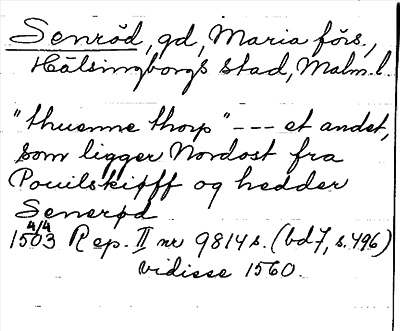 Senröd, gd, Maria förs.,
Hälsingborgs stad, Malm. l.
"thuenne thorp" --- et andet,
som ligger Nordost fra
Pouilskipff og hedder
Senerød
4/4
1503 Rep. II nr 9814 s. (bd 7, s. 496)
vidisse 1560.